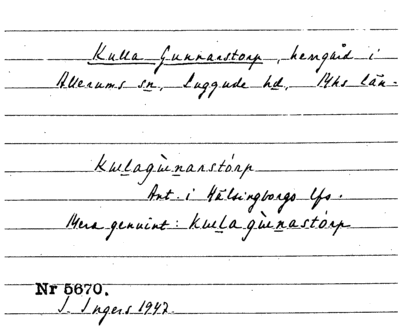 Kulla Gunnarstorp, hemgård i
Allerums sn, Luggude hd, Mhs län.
Kullagunnarstórp
Ant. i Hälsingborgs lfs.
Mera genuint: Kullagunnastórp
Nr 5670.
I. Ingers 1942.